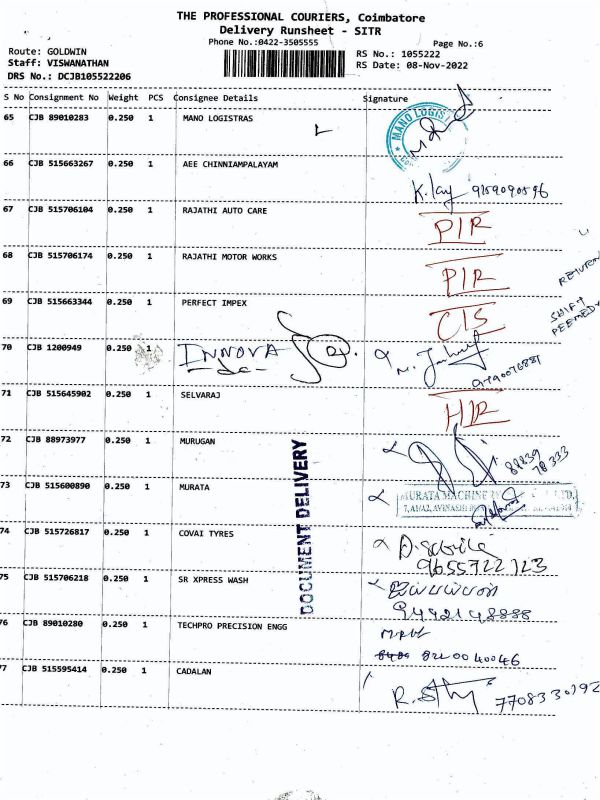 THE PROFESSIONAL COURIERS, Coimbatore
Delivery Runsheet - SITR
Phone No.:0422-3505555
Page No.:6
Route: GOLDWIN
RS No.: 1055222
Staff: VISWANATHAN
RS Date: 08-Nov-2022
DRS No.: DCJB105522206
S No Consignment No Weight PCS Consignee Details Signature
65 CJB 89010283 0.250 1 MANO LOGISTRAS
MANO LOGIS
66 CJB 515663267 0.250 1 AEE CHINNIAMPALAYAM
9159090596
67 CJB 515706104 0.250 1 RAJATHI AUTO CARE
PIR
68 CJB 515706174 0.250 1 RAJATHI MOTOR WORKS
PIR
RETURN
69 CJB 515663344 0.250 1 PERFECT IMPEX
CIS
SHIFT
70 CJB 1200949 0.250 1 INNOVA
71 CJB 515645902 0.250 1 SELVARAJ
HIR
72 CJB 88973977 0.250 1 MURUGAN
88839
78333
73 CJB 515600890 0.250 1 MURATA
MURATA MACHINE
74 CJB 515726817 0.250 1 COVAI TYRES
9655722123
75 CJB 515706218 0.250 1 SR XPRESS WASH
9442148888
76 CJB 89010280 0.250 1 TECHPRO PRECISION ENGG
8220040046
77 CJB 515595414 0.250 1 CADALAN
7708330192
DOCUMENT DELIVERY